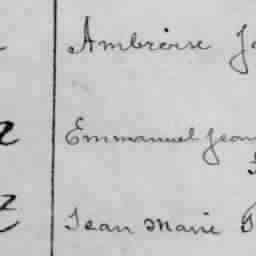 Ambroise
Emmanuel Jean
Jean Marie